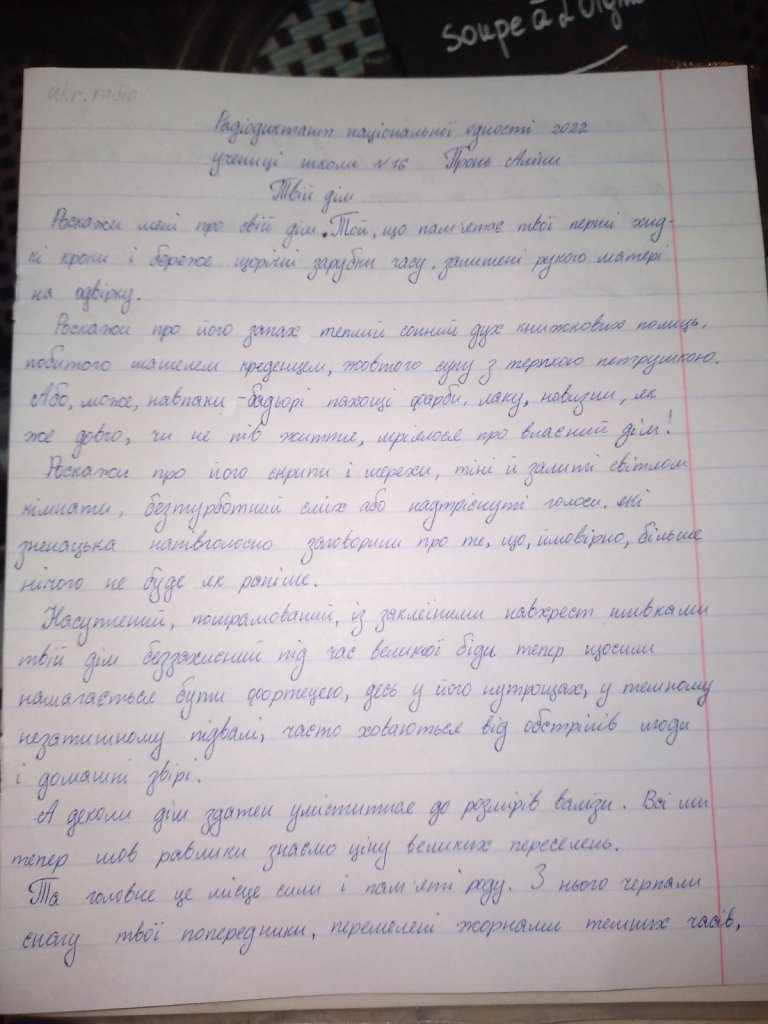 soupe à l'Oign
ukr.radio
Радіодиктант національної єдності 2022
учениці школи №16 Пронь Аліни
Твій дім
Роскажи мені про свій дім. Той, що пам'ятає твої перші хид-
кі крони і береже щорічні зарубки часу, залишені рукою матері
на одвірку.
Роскажи про його запах теплий сонний дух книжкових полиць,
побитого шашелем креденцем, жовтого супу з терпкою петрушкою.
Або, може, навпаки - бадьорі пахощі фарби, лаку, новизни, як
же довго, чи не пів життя, мріялося про власний дім!
Роскажи про його скрипи і шерехи, тіні й залиті світлом
кімнати, безтурботний сміх або надтріснуті голоси, які
зненацька напвголосно заговорили про те, що, ймовірно, більше
нічого не буде як раніше.
Насуплений, пошрамований, із заклеїними навхрест шибками
твій дім беззахисний під час великої біди тепер щосили
намагається бути фортецею, десь у його нутрощах, у темному
незатишному підвалі, часто ховаються від обстрілів люди
і домашні звірі.
А деколи дім здатен уміститися до розмірів валізи. Всі ми
тепер мов равлики знаємо ціну великих переселень.
Та головне це місце сили і пам'яті роду. З нього черпали
снагу твої попередники, перемелені жорнами темних часів,